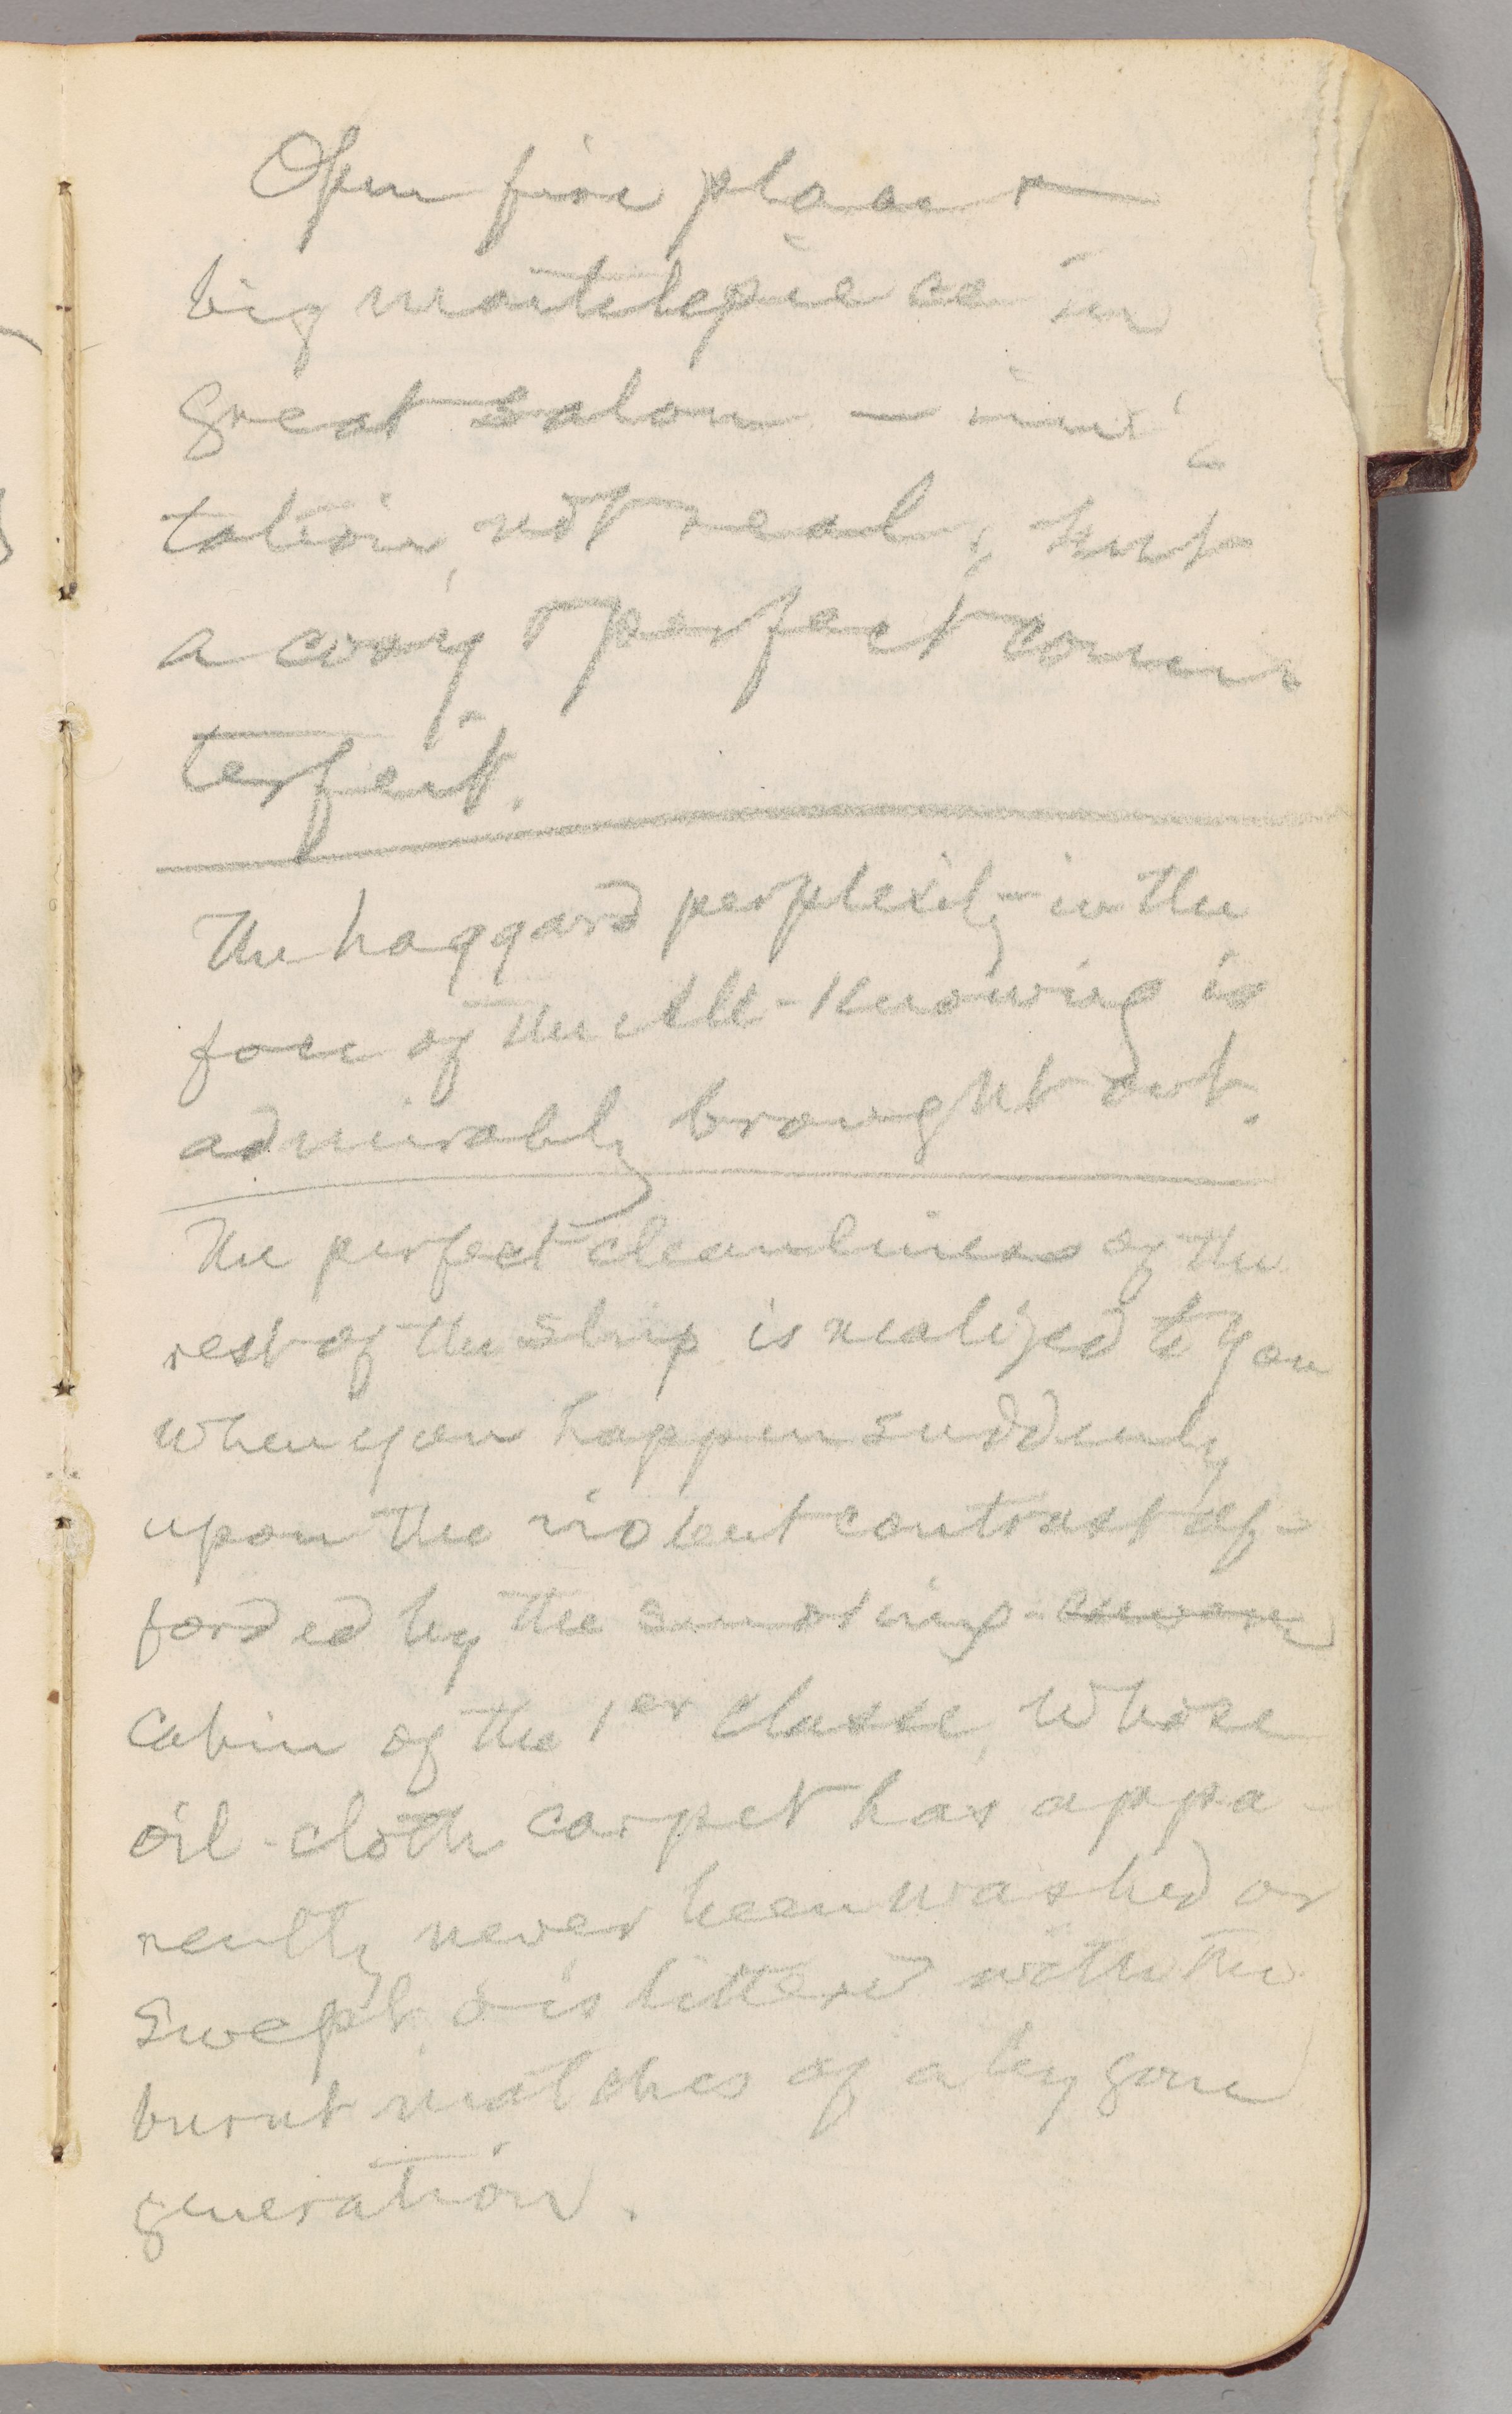 Open fire place &
big mantelpiece in
great salon — imi-
tation, not real, but
a cosy & perfect coun
terfeit.
The haggard perplexity in the
face of the All-Knowing is
admirably brought out.
The perfect cleanliness of the
rest of the ship is realized to you
when you happen suddenly
upon the violent contrast af-
forded by the smoking-
cabin of the 1er classe, whose
oil-cloth carpet has appa-
rently never been washed or
swept & is litterd with the
burnt matches of a by gone
generation.